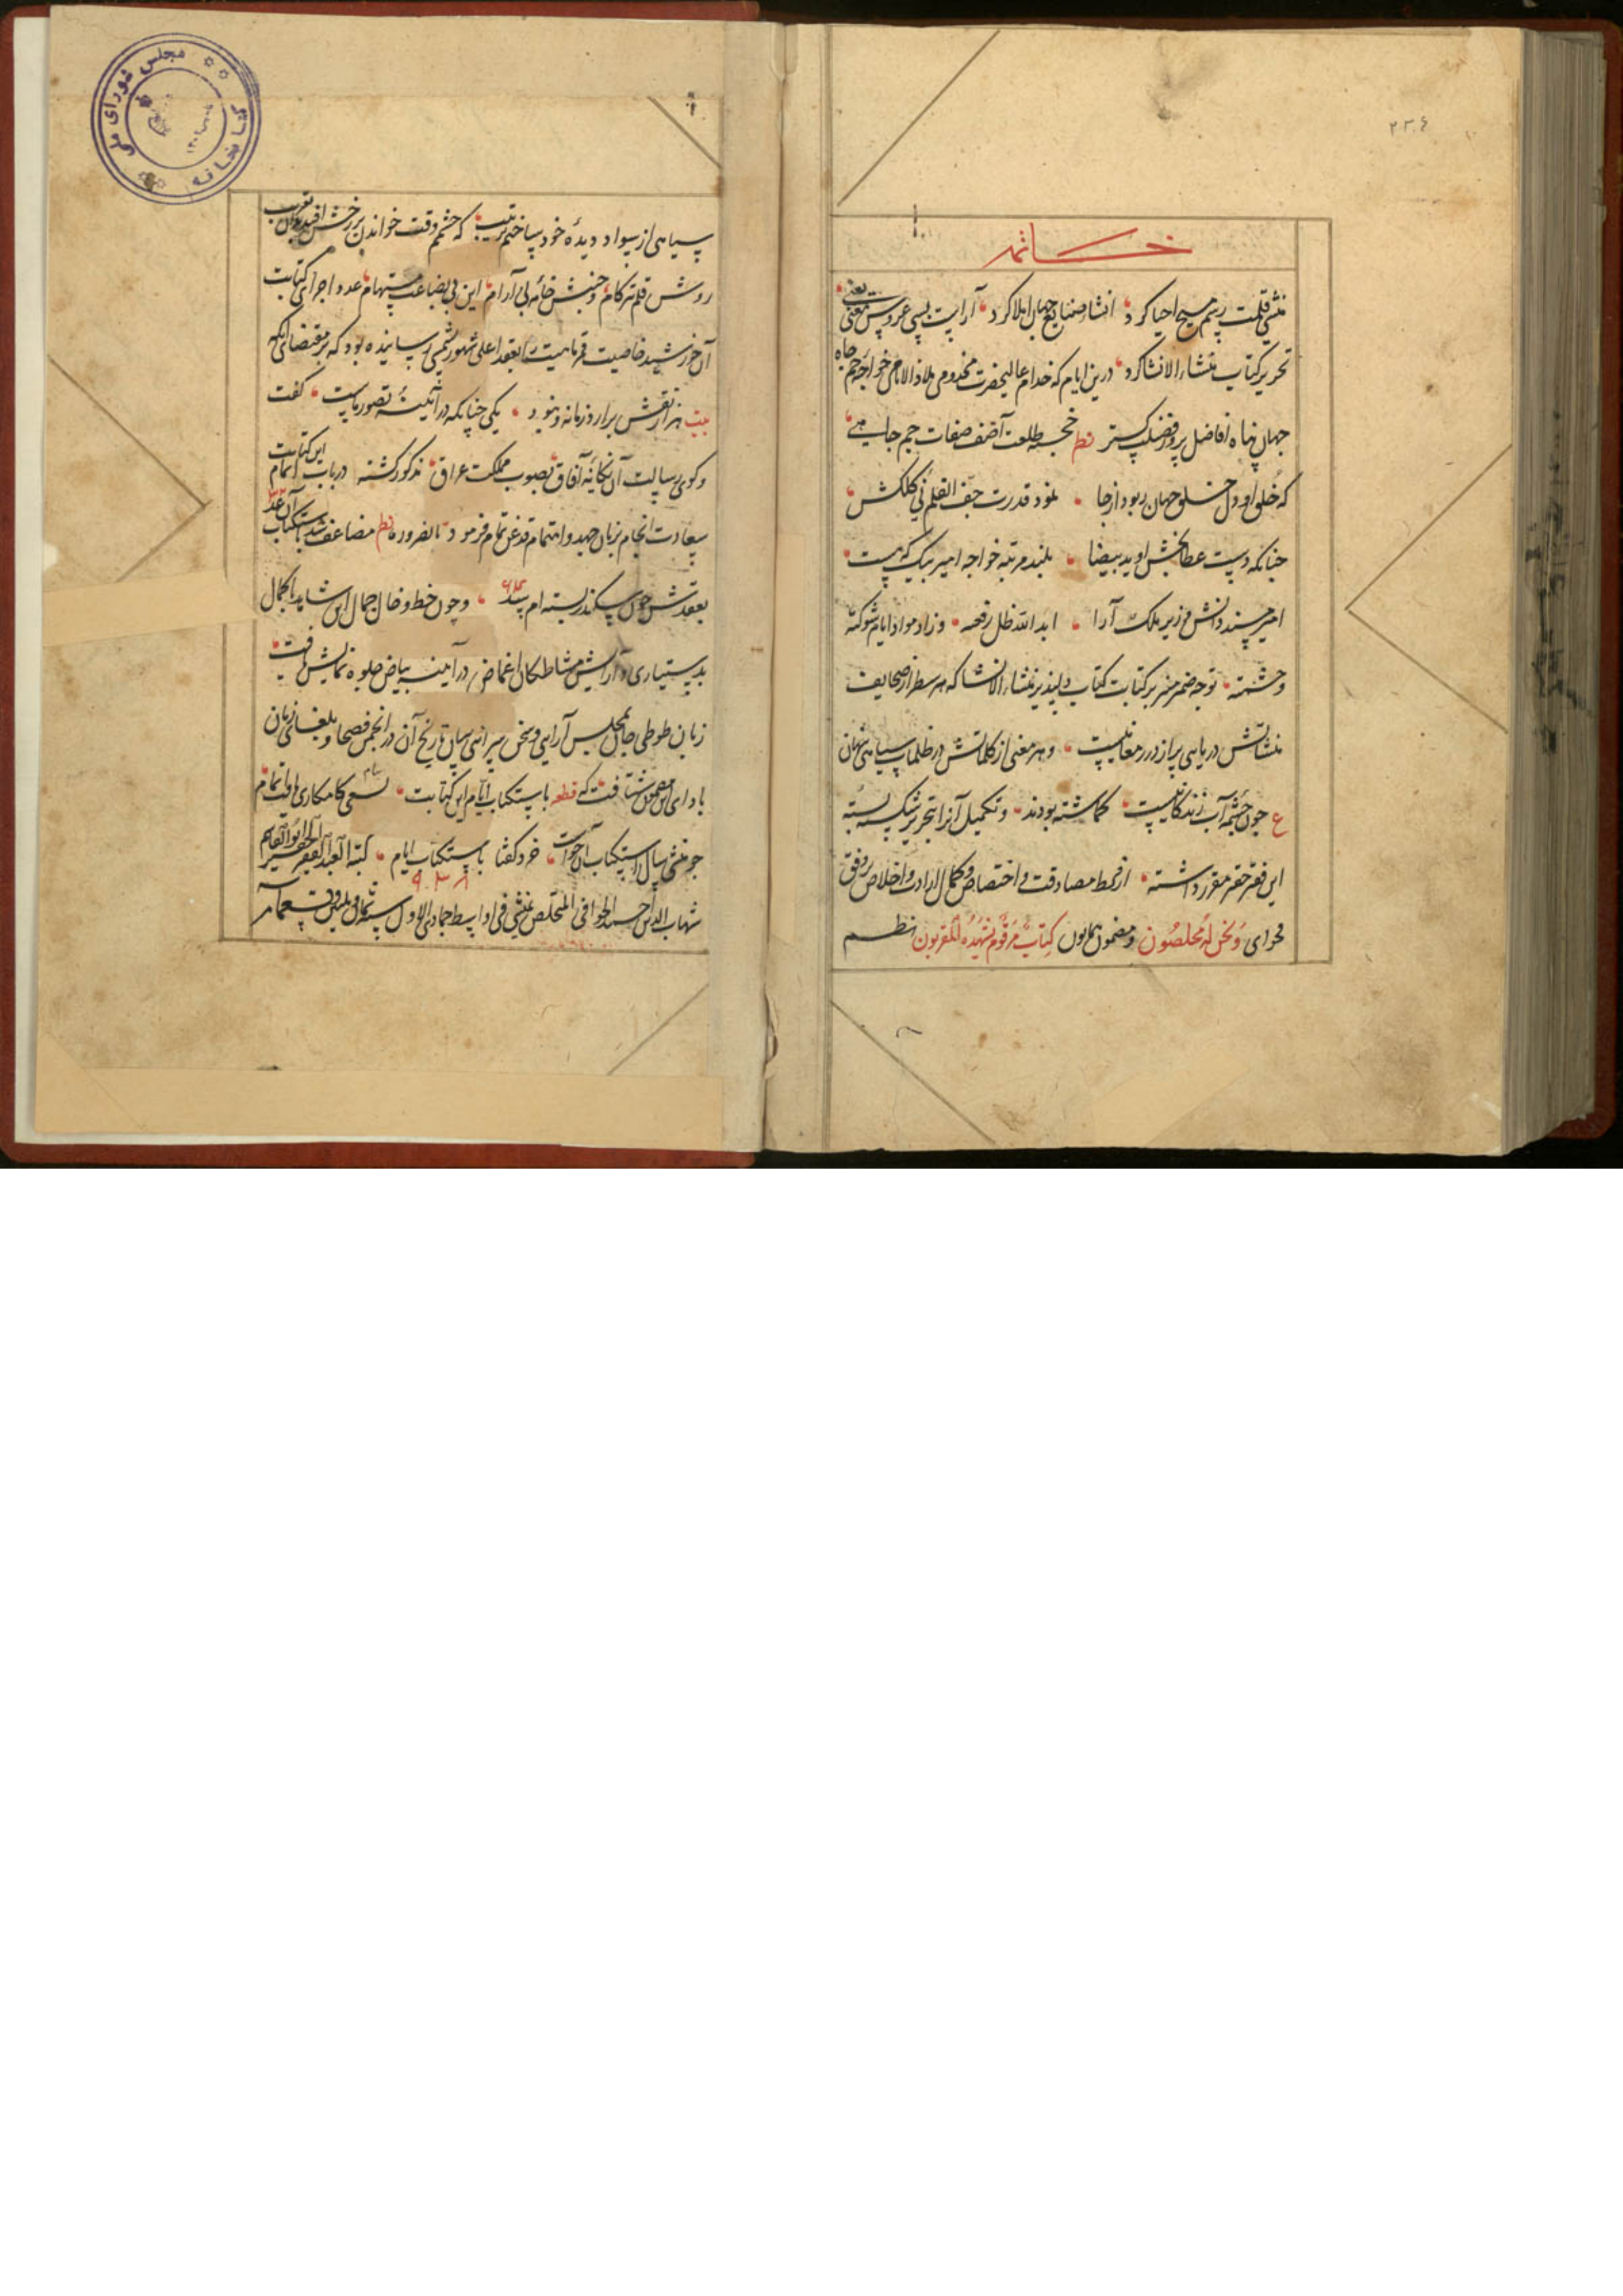 خاتمه
منشی قلمت رسم مسیح احیا کرد انشاء صنایع جهان املا کرد آراست بسی عروس معنی یعنی
تحریر کتاب منشاء الانشا کرد درین ایام که خدام عالیحضرت مخدومی ملاذ الانامی خواجه جم جاه
جهان پناه افاضل پرور فضلیت گستر نظم خجسته طلعت آصف صفات جم جاهی
که خلق او دل خلق جهان ربود از جا نمود قدرت جف القلم نی کلکش
چنانکه دست عطابخش او ید بیضا بلند مرتبه خواجه امیر بیک که هست
امیر مسند دانش وزیر ملک آرا ابد الله ظل رفعته و زاد مواد ایام شوکته
وحشمته توجه ضمیر منیر بر کتابت کتاب دلپذیر منشاء الانشا که هر سطر از صحایف
منشآتش دریایی پر از درر معانیست و هر معنی از کلماتش در ظلمات سیاهی نهان
ع چون چشمه آب زندگانیست گماشته بودند و تکمیل آنرا بتحریر شکسته بسته
این فقیر حقیر مقرر داشته از فرط مصادقت و اختصاص و کمال ارادت و اخلاص بر وفق
فحوای وَنَحْنُ لَهُ مُخلصُون و مضمون همایون کِتابٌ مَرقُومٌ یَشهَدُهُ المُقَربون نظم
سیاهی از سواد دیده خود ساختم ترتیب که چشم وقت خواندن بر رخش افتد بدان تقریب
روش قلم تیزکام و جنبش خامه بی آرام این بی بضاعت مستهام عدد اجرای کتابت
آن خورشید خاصیت قمر ماهیت را بعقد اعلی شهور شمسی رسانیده بود که بر مقتضای آنکه
بیت هزار نقش برآرد زمانه و نبود یکی چنانکه در آئینهٔ تصور ماست گفت
و کوی رسالت آن یگانه آفاق بصوب مملکت عراق مذکور گشته در باب اتمام این کتابت
سعادت انجام بزبان جهد و اهتمام قدغن تمام فرمود بالضروره نظم مضاعف شد باستکتاب آن عقد
بعقدش چون سکندر بسته ام سد و چون خط و خال جمال این شاهد با کمال
بدستیاری و آرایش مشاطگان اغماض در آینه بیاض جلوه نمایش یافت
زبان طوطی جان بمجلس آرایی و سخن سرائی بیان تاریخ آن در انجمن فصحا و بلغای زمان
بادای این مضمون شتافت که قطعه باستکتاب ایام این کتابت بسعی کامکاری یافت اتمام
چو منشی سال استکتاب آن خواست خرد گفتا باستکتاب ایام کتبه العبد الفقیر الحقیر ابوالقاسم
۹۳۸
شهاب الدین احمد الخوافی المتخلص بمنشی فی اواسط جمادی الاول سنه ثمان و ثلثین و تسعمائه
کتابخانه مجلس شورای ملی